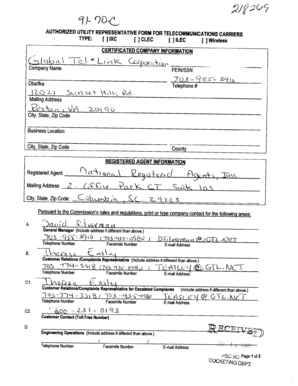 218269
91-70-C
AUTHORIZED UTILITY REPRESENTATIVE FORM FOR TELECOMMUNICATIONS CARRIERS
TYPE: [ ] IXC [ ] CLEC [ ] ILEC [ ] Wireless
CERTIFICATED COMPANY INFORMATION
Global Tel*Link Corporation
Company Name FEIN/SSN
703-955-3916
Dba/fka Telephone #
12021 Sunset Hills Rd.
Mailing Address
Reston, VA 20190
City, State, Zip Code
Business Location
City, State, Zip Code County
REGISTERED AGENT INFORMATION
Registered Agent: National Registered Agents, Inc.
Mailing Address: 2 Office Park CT Suite 103
City, State, Zip Code: Columbia, SC 29223
Pursuant to the Commission's rules and regulations, print or type company contact for the following areas:
A. David Silverman
General Manager (Include address if different than above.)
703-955-3910 / 703-435-0980 /
Telephone Number Facsimile Number E-mail Address
B. Therese Easley
Customer Relations/Complaints Representative (Include address if different than above.)
/ TEASLEY@GTL.NET
Telephone Number Facsimile Number E-mail Address
C1. Therese Easley
Customer Relations/Complaints Representative for Escalated Complaints (Include address if different than above.)
/ TEASLEY@GTL.NET
Telephone Number Facsimile Number E-mail Address
C2.
Customer Contact (Toll Free Number)
D. RECEIVED
Engineering Operations (Include address if different than above.)
/ /
Telephone Number Facsimile Number E-mail Address
PSC SC Page 1 of 2
DOCKETING DEPT.